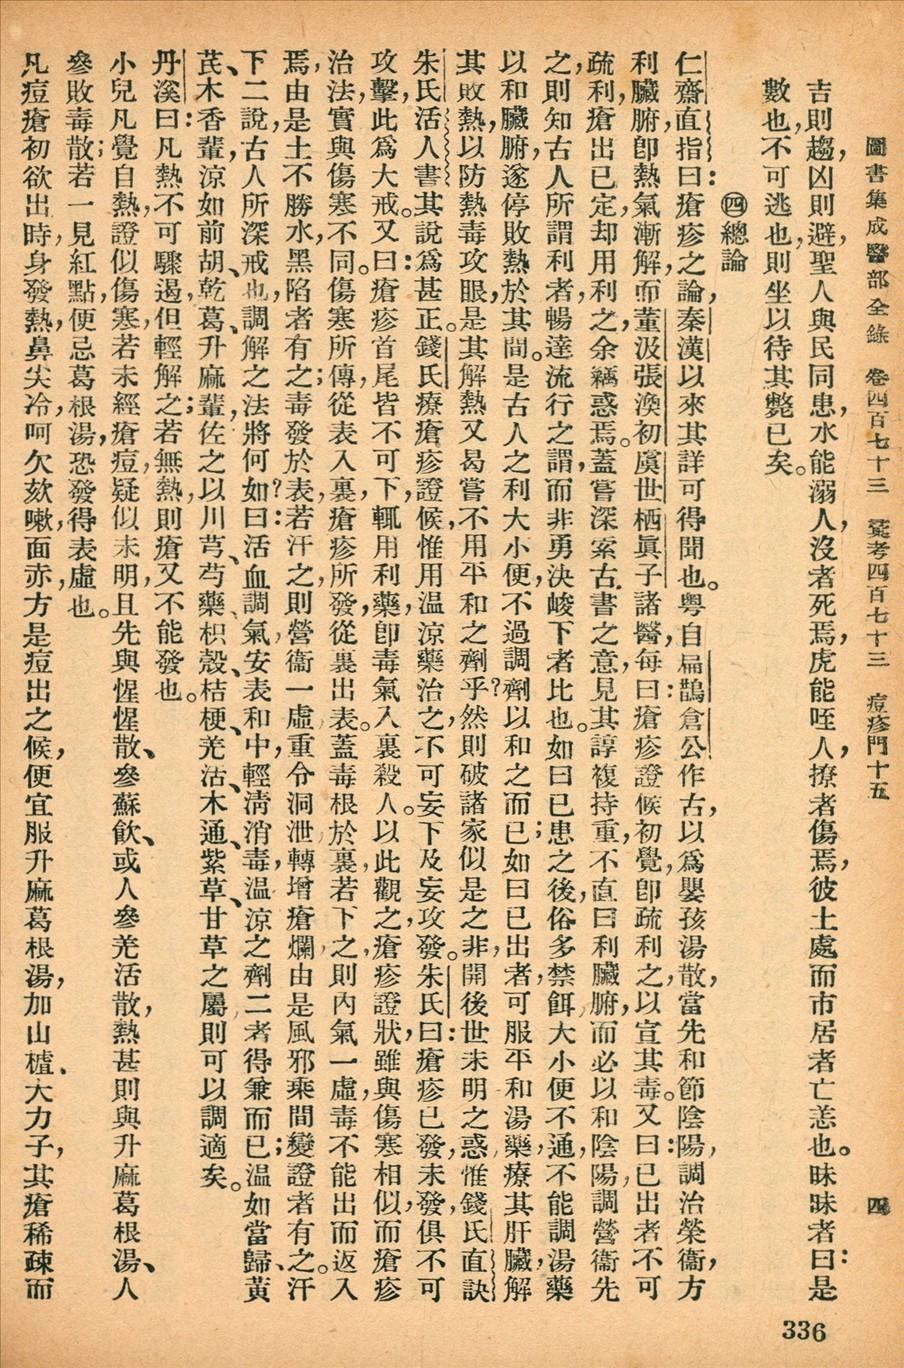 圖書集成醫部全錄　卷四百七十三　彙考四百七十三　痘疹門十五　四
吉則趨，凶則避，聖人與民同患，水能溺人，沒者死焉，虎能咥人，撩者傷焉，彼土處而市居者亡恙也。昧昧者曰：是
數也，不可逃也，則坐以待其斃已矣。
㊃總論
仁齋直指曰：瘡疹之論，秦漢以來其詳可得聞也。粵自扁鵲倉公作古，以爲嬰孩湯散，當先和節陰陽，調治榮衞，方
利臟腑，卽熱氣漸解，而董汲張渙初虞世栖眞子諸醫，每曰：瘡疹證候初覺，卽疏利之，以宣其毒。又曰：已出者不可
疏利，瘡出已定，却用利之，余竊惑焉。蓋嘗深索古書之意，見其諄複持重，不直曰利臟腑，而必以和陰陽，調營衞先
之，則知古人所謂利者，暢達流行之謂，而非勇決峻下者比也。如曰已患之後，俗多禁餌，大小便不通，不能調湯藥
以和臟腑，遂停敗熱於其間。是古人之利大小便，不過調劑以和之而已；如曰已出者，可服平和湯藥，療其肝臟，解
其敗熱，以防熱毒攻眼，是其解熱又曷嘗不用平和之劑乎？然則破諸家似是之非，開後世未明之惑，惟錢氏直訣
朱氏活人書，其說爲甚正。錢氏療瘡疹證候，惟用溫涼藥治之，不可妄下及妄攻發。朱氏曰：瘡疹已發未發，俱不可
攻擊，此爲大戒。又曰：瘡疹首尾皆不可下，輒用利藥，卽毒氣入裏殺人。以此觀之，瘡疹證狀，雖與傷寒相似，而瘡疹
治法，實與傷寒不同。傷寒所傳，從表入裏，瘡疹所發，從裏出表。蓋毒根於裏，若下之，則內氣一虛，毒不能出而返入
焉，由是土不勝水，黑陷者有之；毒發於表，若汗之，則營衞一虛，重令洞泄，轉增瘡爛，由是風邪乘間變證者有之。汗
下二說，古人所深戒也，調解之法將何如？曰：活血調氣，安表和中，輕清消毒，溫涼之劑二者得兼而已；溫如當歸、黃
芪、木香輩，涼如前胡、乾葛、升麻輩；佐之以川芎、芍藥、枳殼、桔梗、羌活、木通、紫草、甘草之屬，則可以調適矣。
丹溪曰：凡熱不可驟遏，但輕解之；若無熱，則瘡又不能發也。
小兒凡覺自熱，證似傷寒，若未經瘡痘，疑似未明，且先與惺惺散、參蘇飲、或人參羌活散，熱甚則與升麻葛根湯、人
參敗毒散；若一見紅點，便忌葛根湯，恐發得表虛也。
凡痘瘡初欲出時，身發熱，鼻尖冷，呵欠欬嗽，面赤，方是痘出之候，便宜服升麻葛根湯，加山樝、大力子，其瘡稀疎而
336